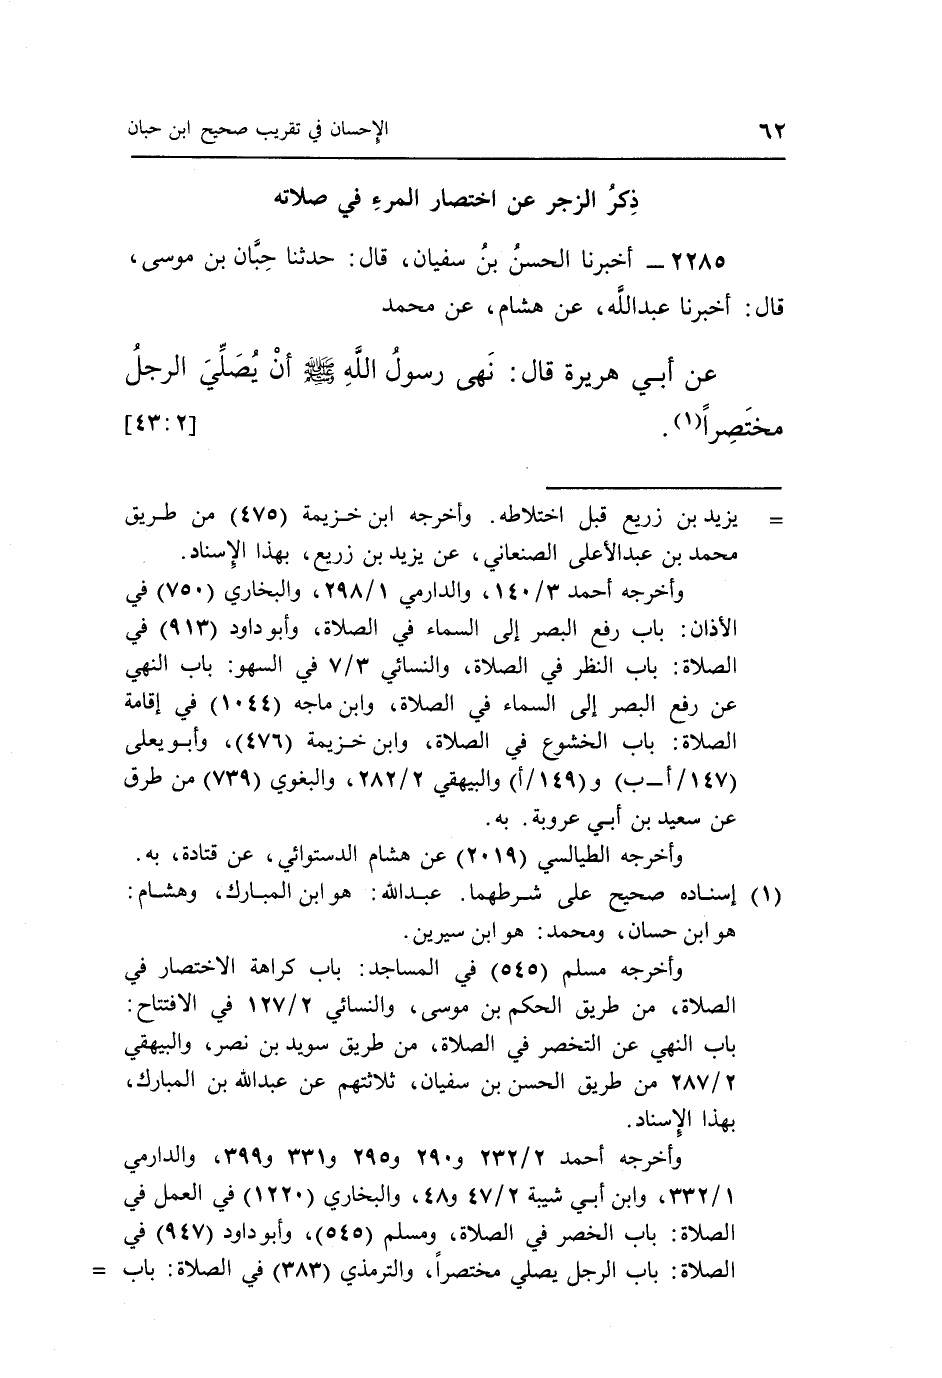 ٦٢ الإحسان في تقريب صحيح ابن حبان
ذِكرُ الزجر عن اختصار المرءِ في صلاته
٢٢٨٥ ــ أخبرنا الحسنُ بنُ سفيان، قال: حدثنا حِبَّان بن موسى،
قال: أخبرنا عبداللَّه، عن هشام، عن محمد
عن أبـي هريرة قال: نَهى رسولُ اللَّهِ ﷺ أنْ يُصَلِّيَ الرجلُ
مختَصِراً(١). [٤٣:٢]
= يزيد بن زريع قبل اختلاطه. وأخرجه ابن خـزيمة (٤٧٥) من طـريق
محمد بن عبدالأعلى الصنعاني، عن يزيد بن زريع، بهذا الإسناد.
وأخرجه أحمد ١٤٠/٣، والدارمي ٢٩٨/١، والبخاري (٧٥٠) في
الأذان: باب رفع البصر إلى السماء في الصلاة، وأبو داود (٩١٣) في
الصلاة: باب النظر في الصلاة، والنسائي ٧/٣ في السهو: باب النهي
عن رفع البصر إلى السماء في الصلاة، وابن ماجه (١٠٤٤) في إقامة
الصلاة: باب الخشوع في الصلاة، وابن خـزيمة (٤٧٦)، وأبـو يعلى
(١٤٧/أ ــ ب) و (١٤٩/أ) والبيهقي ٢٨٢/٢، والبغوي (٧٣٩) من طرق
عن سعيد بن أبـي عروبة. به.
وأخرجه الطيالسي (٢٠١٩) عن هشام الدستوائي، عن قتادة، به.
(١) إسناده صحيح على شـرطهما. عبـدالله: هو ابن المبـارك، وهشـام:
هو ابن حسان، ومحمد: هو ابن سيرين.
وأخرجه مسلم (٥٤٥) في المساجد: باب كراهة الاختصار في
الصلاة، من طريق الحكم بن موسى، والنسائي ١٢٧/٢ في الافتتاح:
باب النهي عن التخصر في الصلاة، من طريق سويد بن نصر، والبيهقي
٢٨٧/٢ من طريق الحسن بن سفيان، ثلاثتهم عن عبدالله بن المبارك،
بهذا الإسناد.
وأخرجه أحمد ٢٣٢/٢ و٢٩٠ و٢٩٥ و٣٣١ و٣٩٩، والدارمي
٣٣٢/١، وابن أبـي شيبة ٤٧/٢ و٤٨، والبخاري (١٢٢٠) في العمل في
الصلاة: باب الخصر في الصلاة، ومسلم (٥٤٥)، وأبو داود (٩٤٧) في
الصلاة: باب الرجل يصلي مختصراً، والترمذي (٣٨٣) في الصلاة: باب =